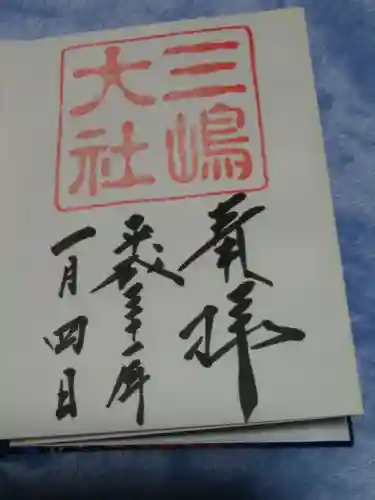 三嶋
大社
奉拝
平成三十一年
一月四日